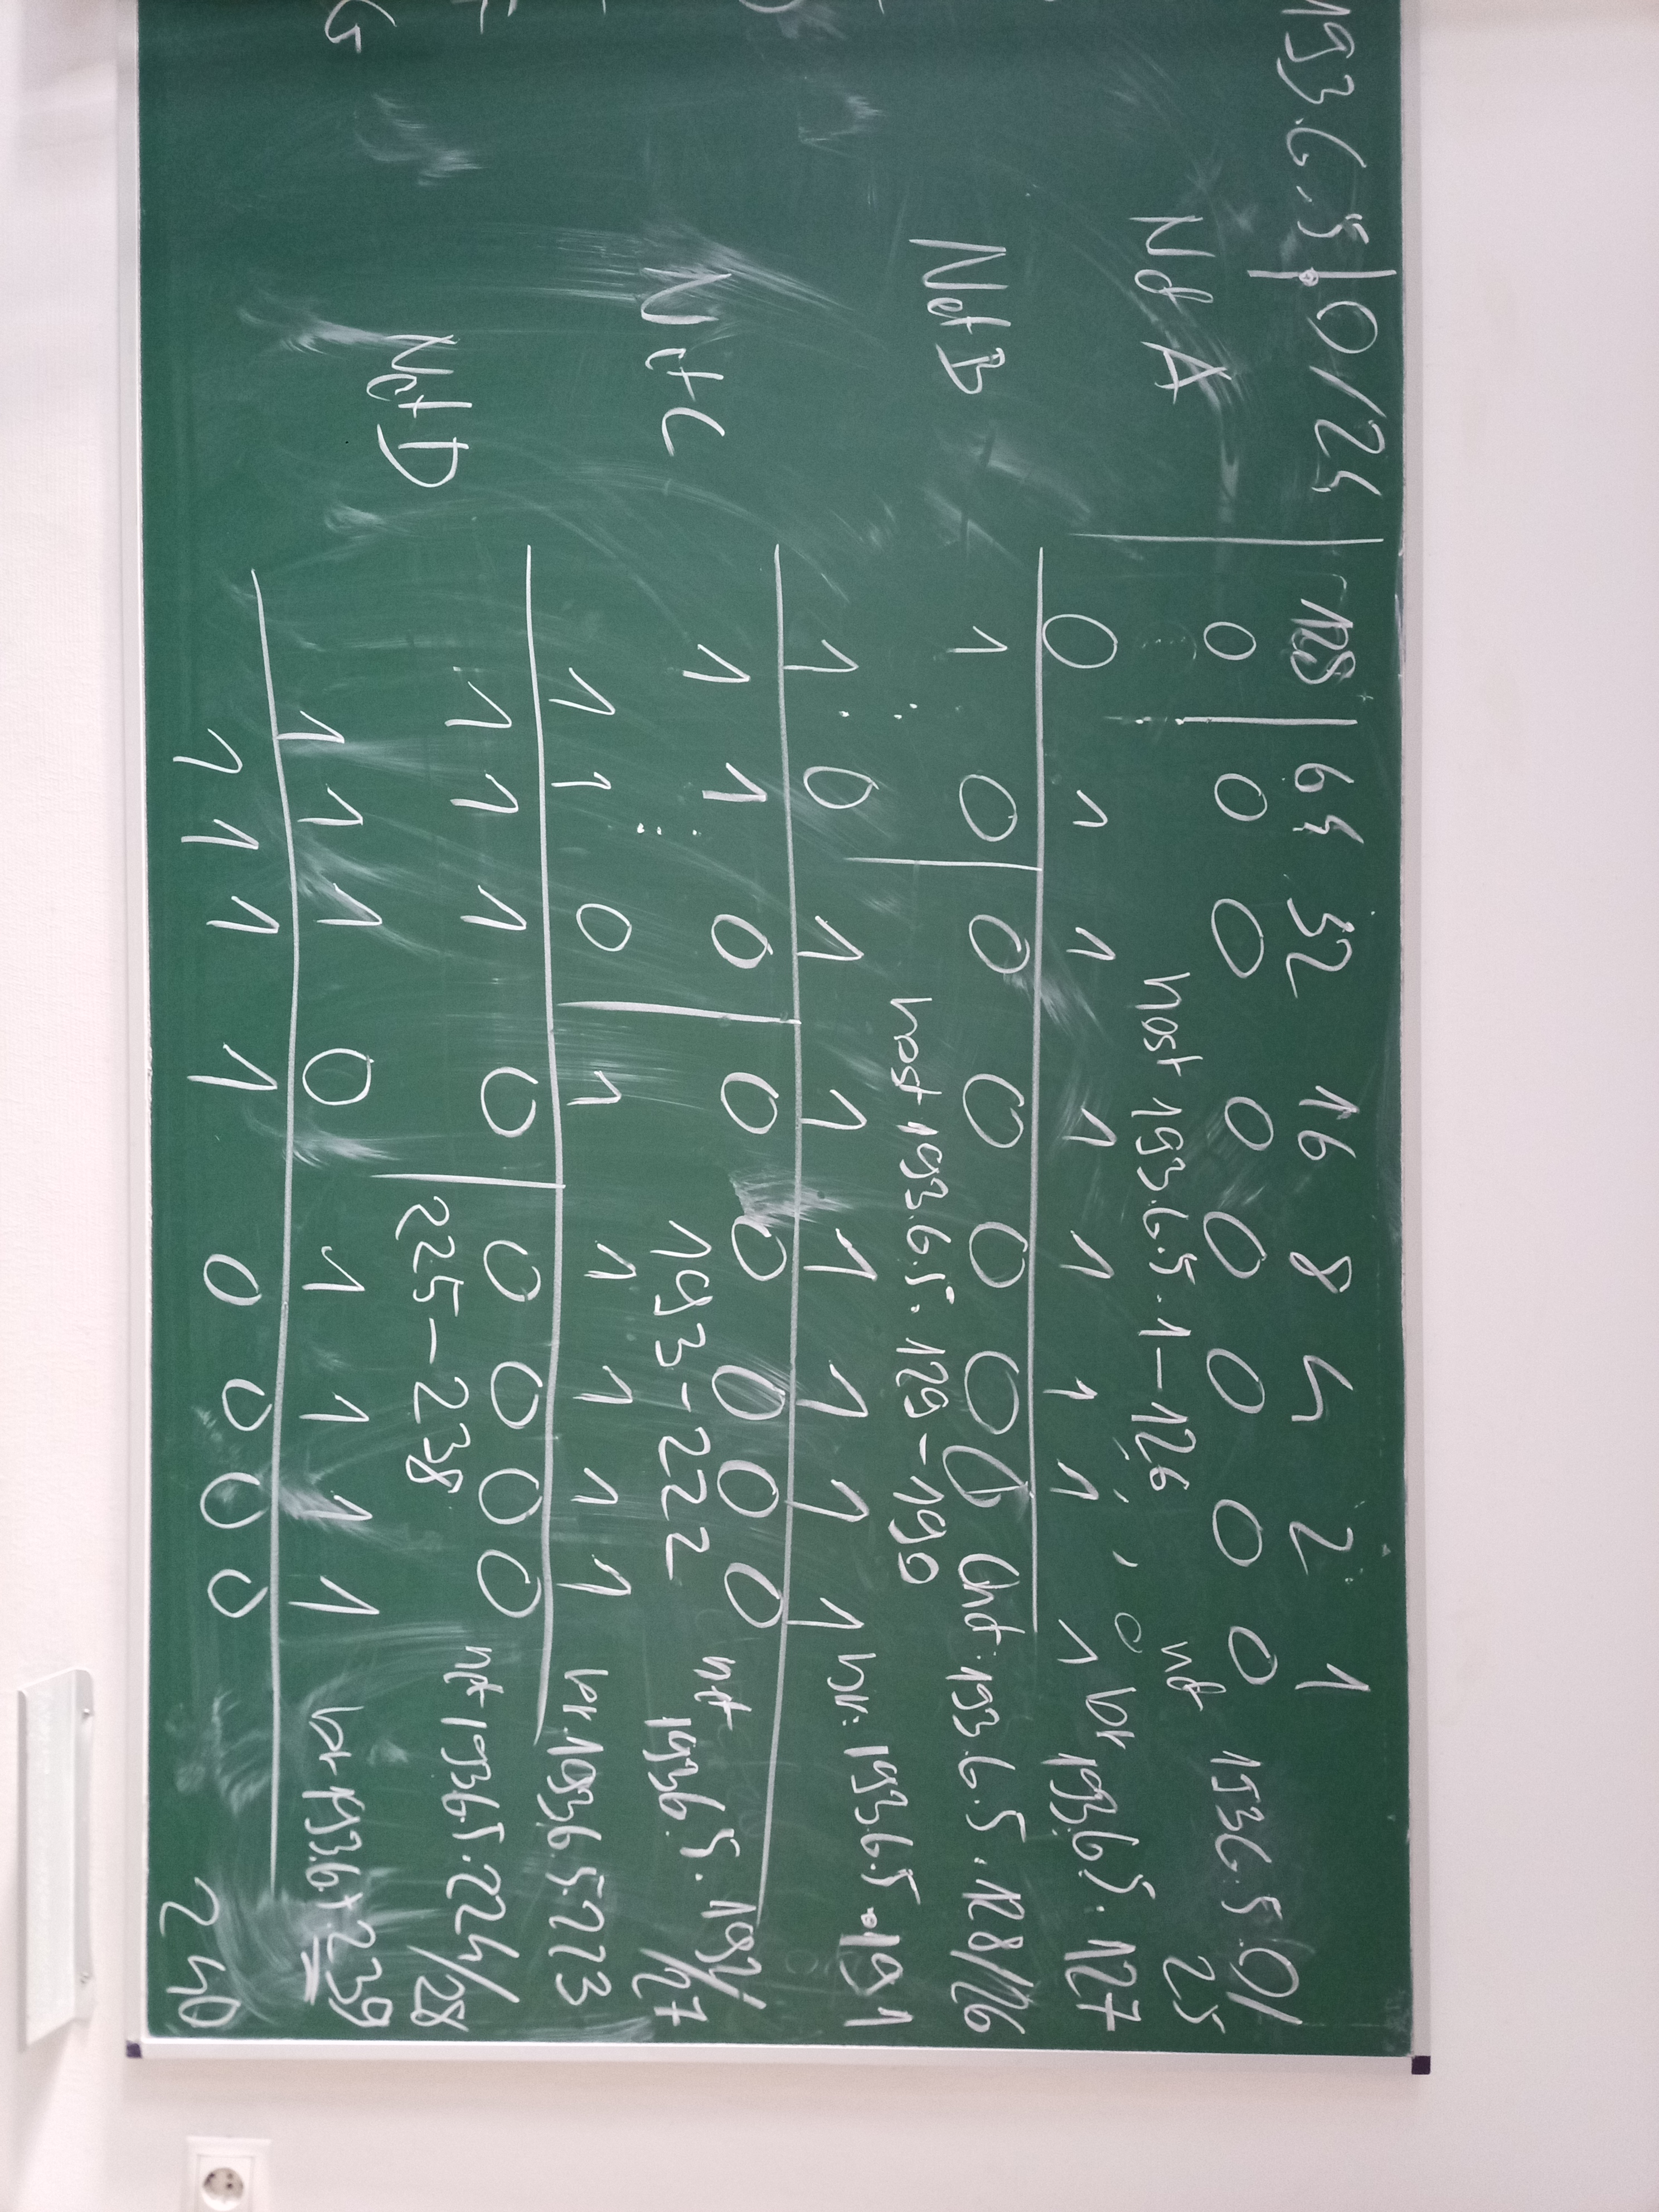 193.6.5.|0/24 | 128 | 64 32 16 8 4 2 1
Net A 0 | 0 0 0 0 0 0 0 193.6.5.0/
host 193.6.5.1-126 25
0 1 1 1 1 1 1 1 br 193.6.5.127
Net B 1 0 | 0 0 0 0 0 0 193.6.5.128/26
host 193.6.5.129-190
1 0 1 1 1 1 1 1 br. 193.6.5.191
Net C 1 1 0 | 0 0 0 0 0 net 193.6.5.192/
193-222 27
1 1 0 1 1 1 1 1 br. 193.6.5.223
Net D 1 1 1 0 | 0 0 0 0 net 193.6.5.224/28
225-238
1 1 1 0 1 1 1 1 br 193.6.5.239
1 1 1 1 0 0 0 0 240
G